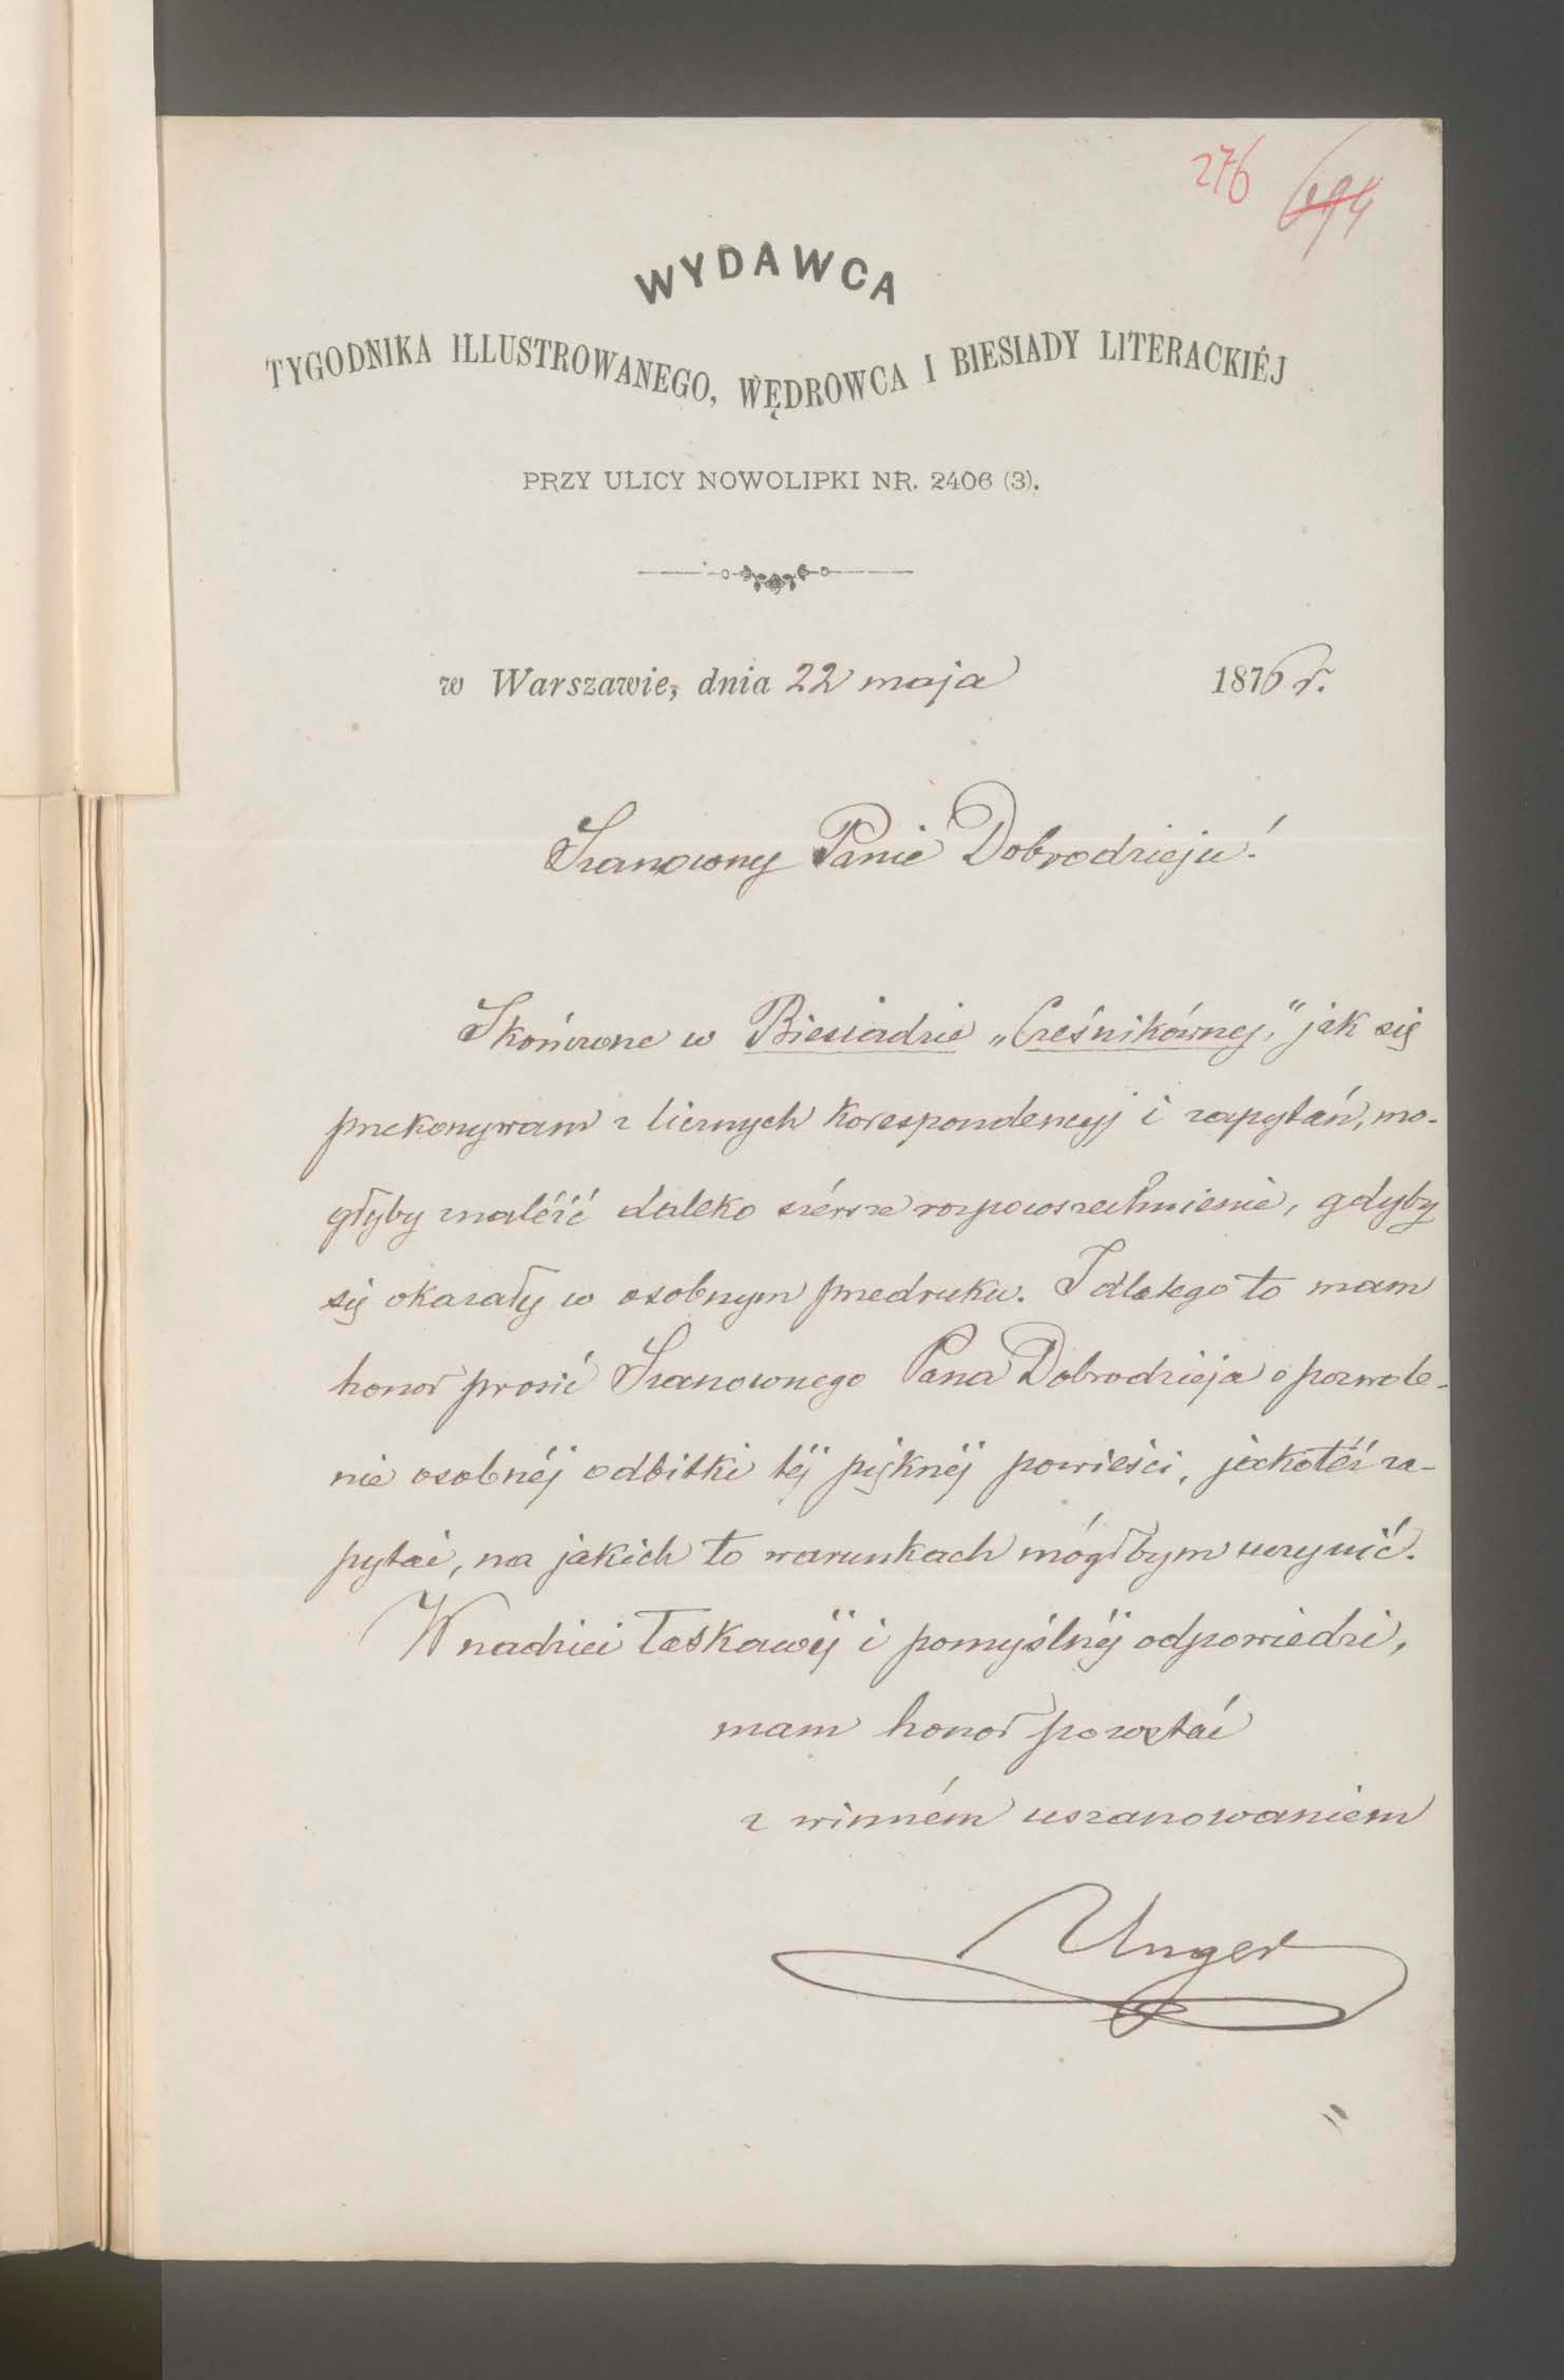 276 694
WYDAWCA
TYGODNIKA ILLUSTROWANEGO, WĘDROWCA I BIESIADY LITERACKIÉJ
PRZY ULICY NOWOLIPKI NR. 2406 (3).
w Warszawie, dnia 22 maja 1876 r.
Szanowny Panie Dobrodzieju!
Skończone w Biesiadzie „Cześnikównej,” jak się
przekonywam z licznych korespondencyj i zapytań, mo-
głyby znaléźć daleko szérsze rozpowszechnienie, gdyby
się okazały w osobnym przedruku. I dlatego to mam
honor prosić Szanownego Pana Dobrodzieja o pozwole-
nie osobnéj odbitki téj pięknéj powieści, jakotéż za-
pytać, na jakich to warunkach mógłbym uczynić.
W nadziei łaskawéj i pomyślnéj odpowiedzi,
mam honor pozostać
z winném uszanowaniem
Unger